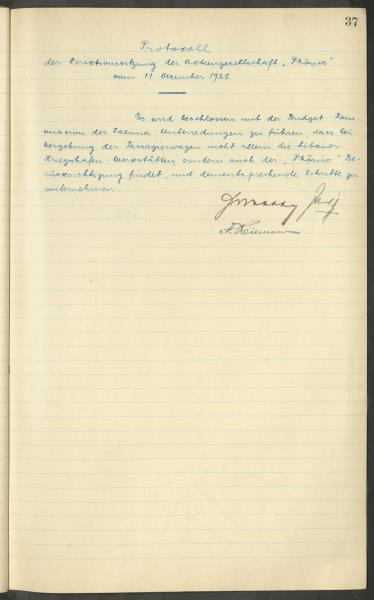 37
Protokoll
der Direktionssitzung der Aktiengesellschaft „Phönix"
vom 11 Dezember 1928
Es wird beschlossen mit der Budget-Kom-
mission des Saeima Unterredungen zu führen, dass bei
Vergebung der Passagierwagen nicht allein die Libauer
Kriegshafen-Werkstätten sondern auch der „Phönix" Be-
rücksichtigung findet, und dementsprechende Schritte zu
unternehmen.